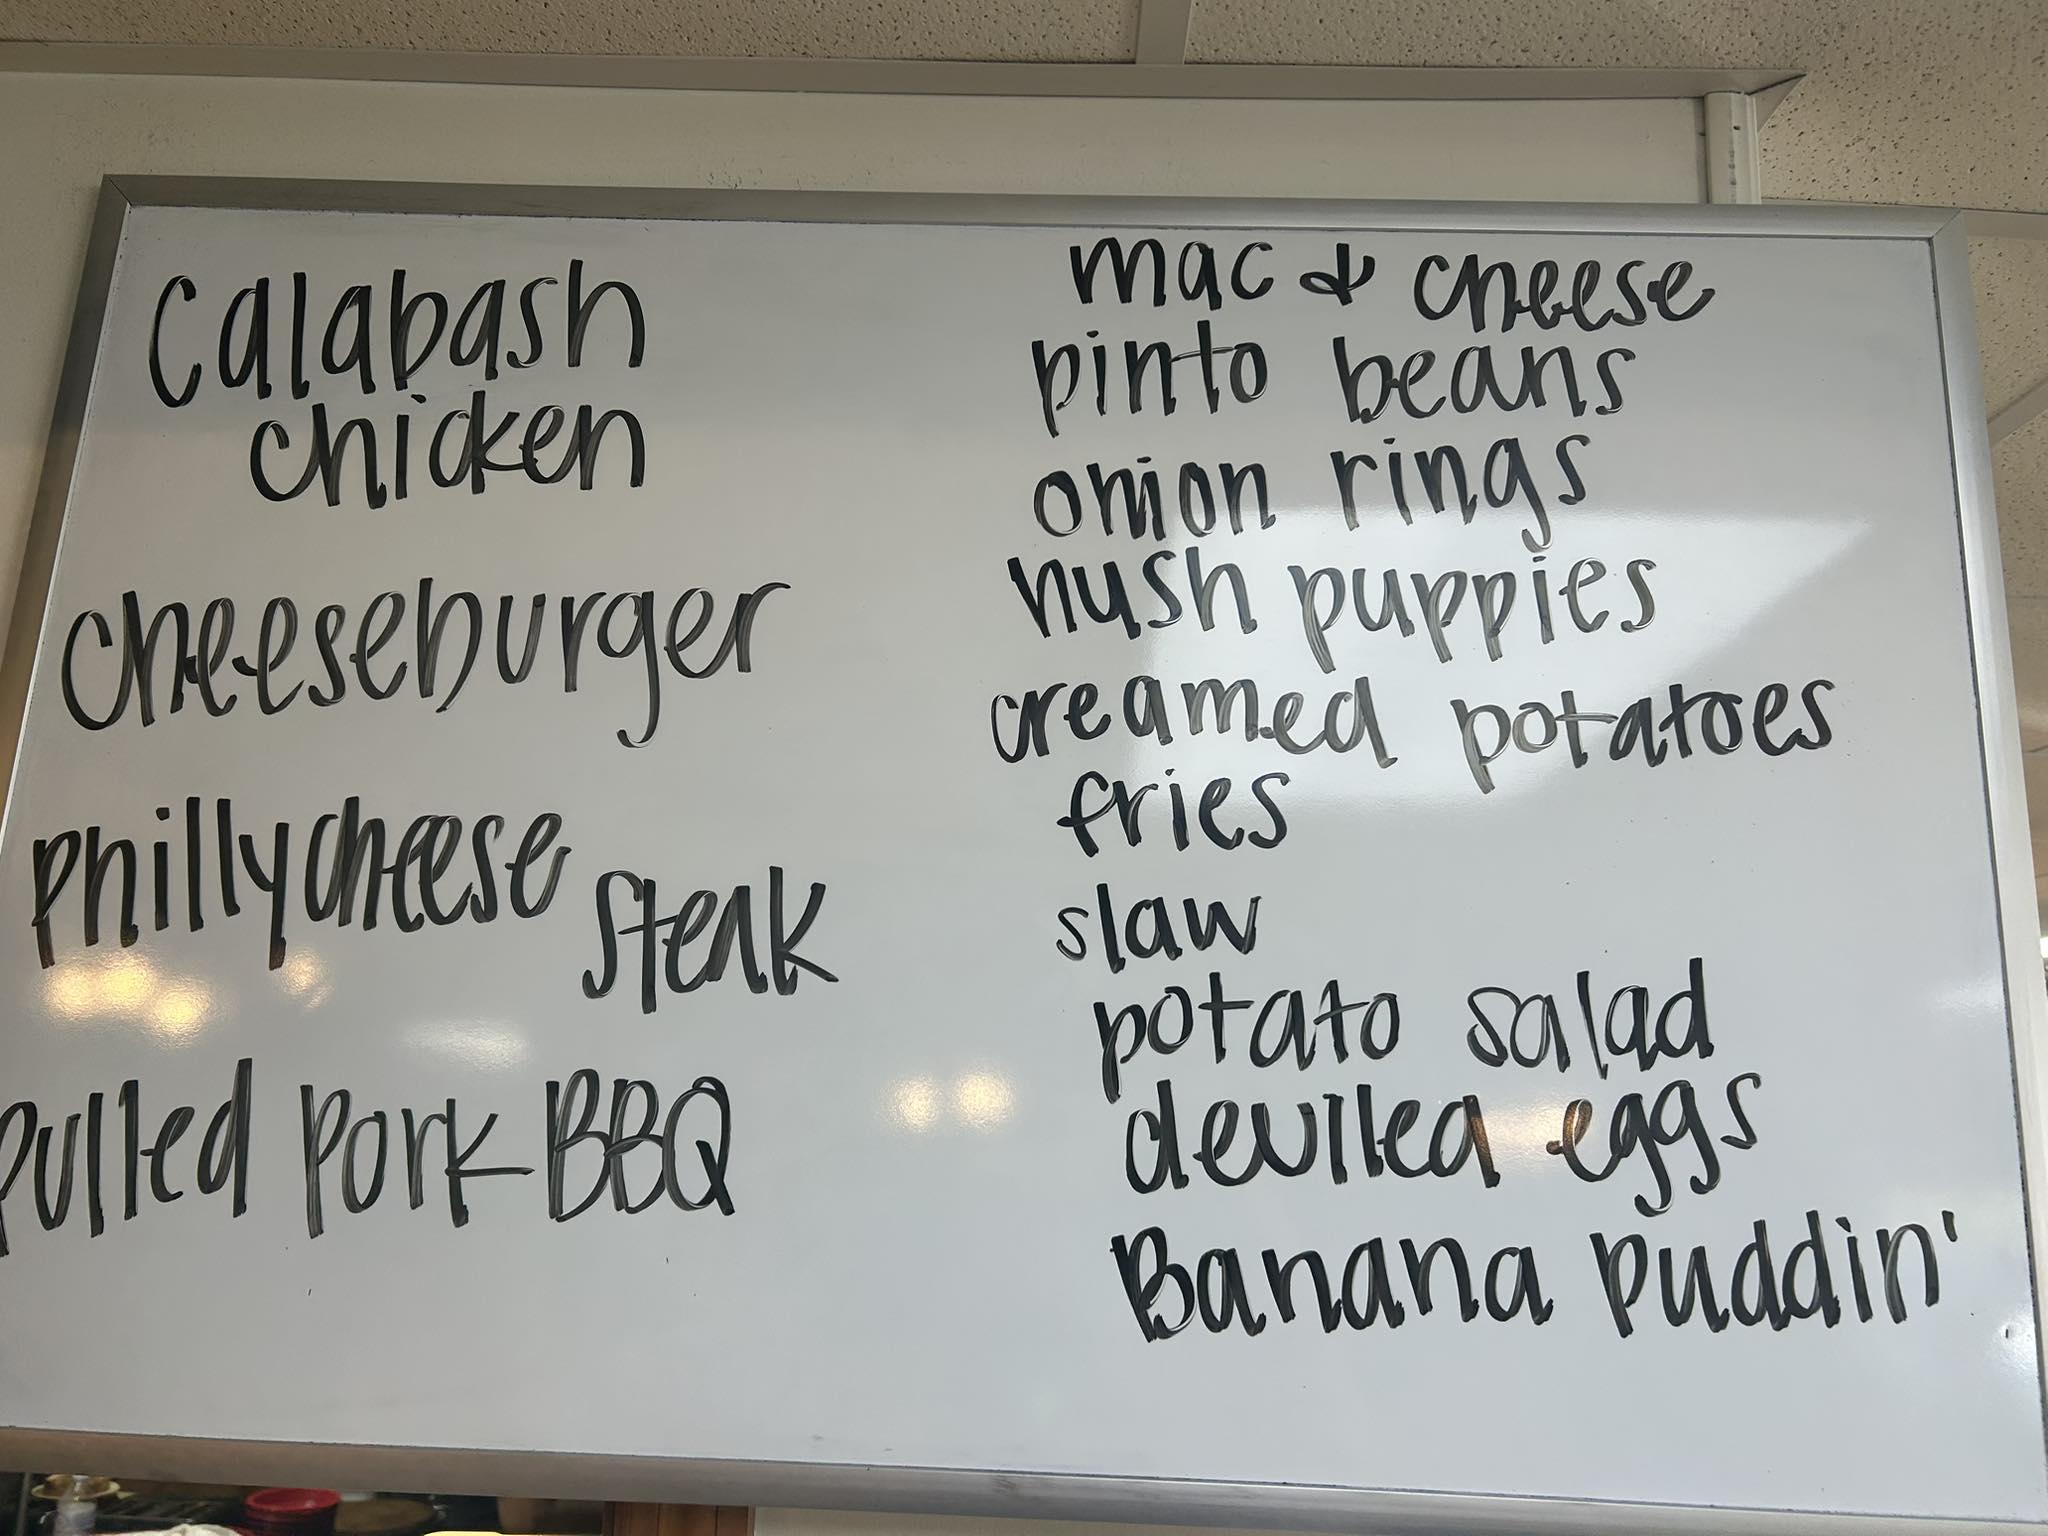 Calabash
chicken
cheeseburger
phillycheese steak
Pulled Pork BBQ
mac & cheese
pinto beans
onion rings
hush puppies
creamed potatoes
fries
slaw
potato salad
deviled eggs
Banana Puddin'